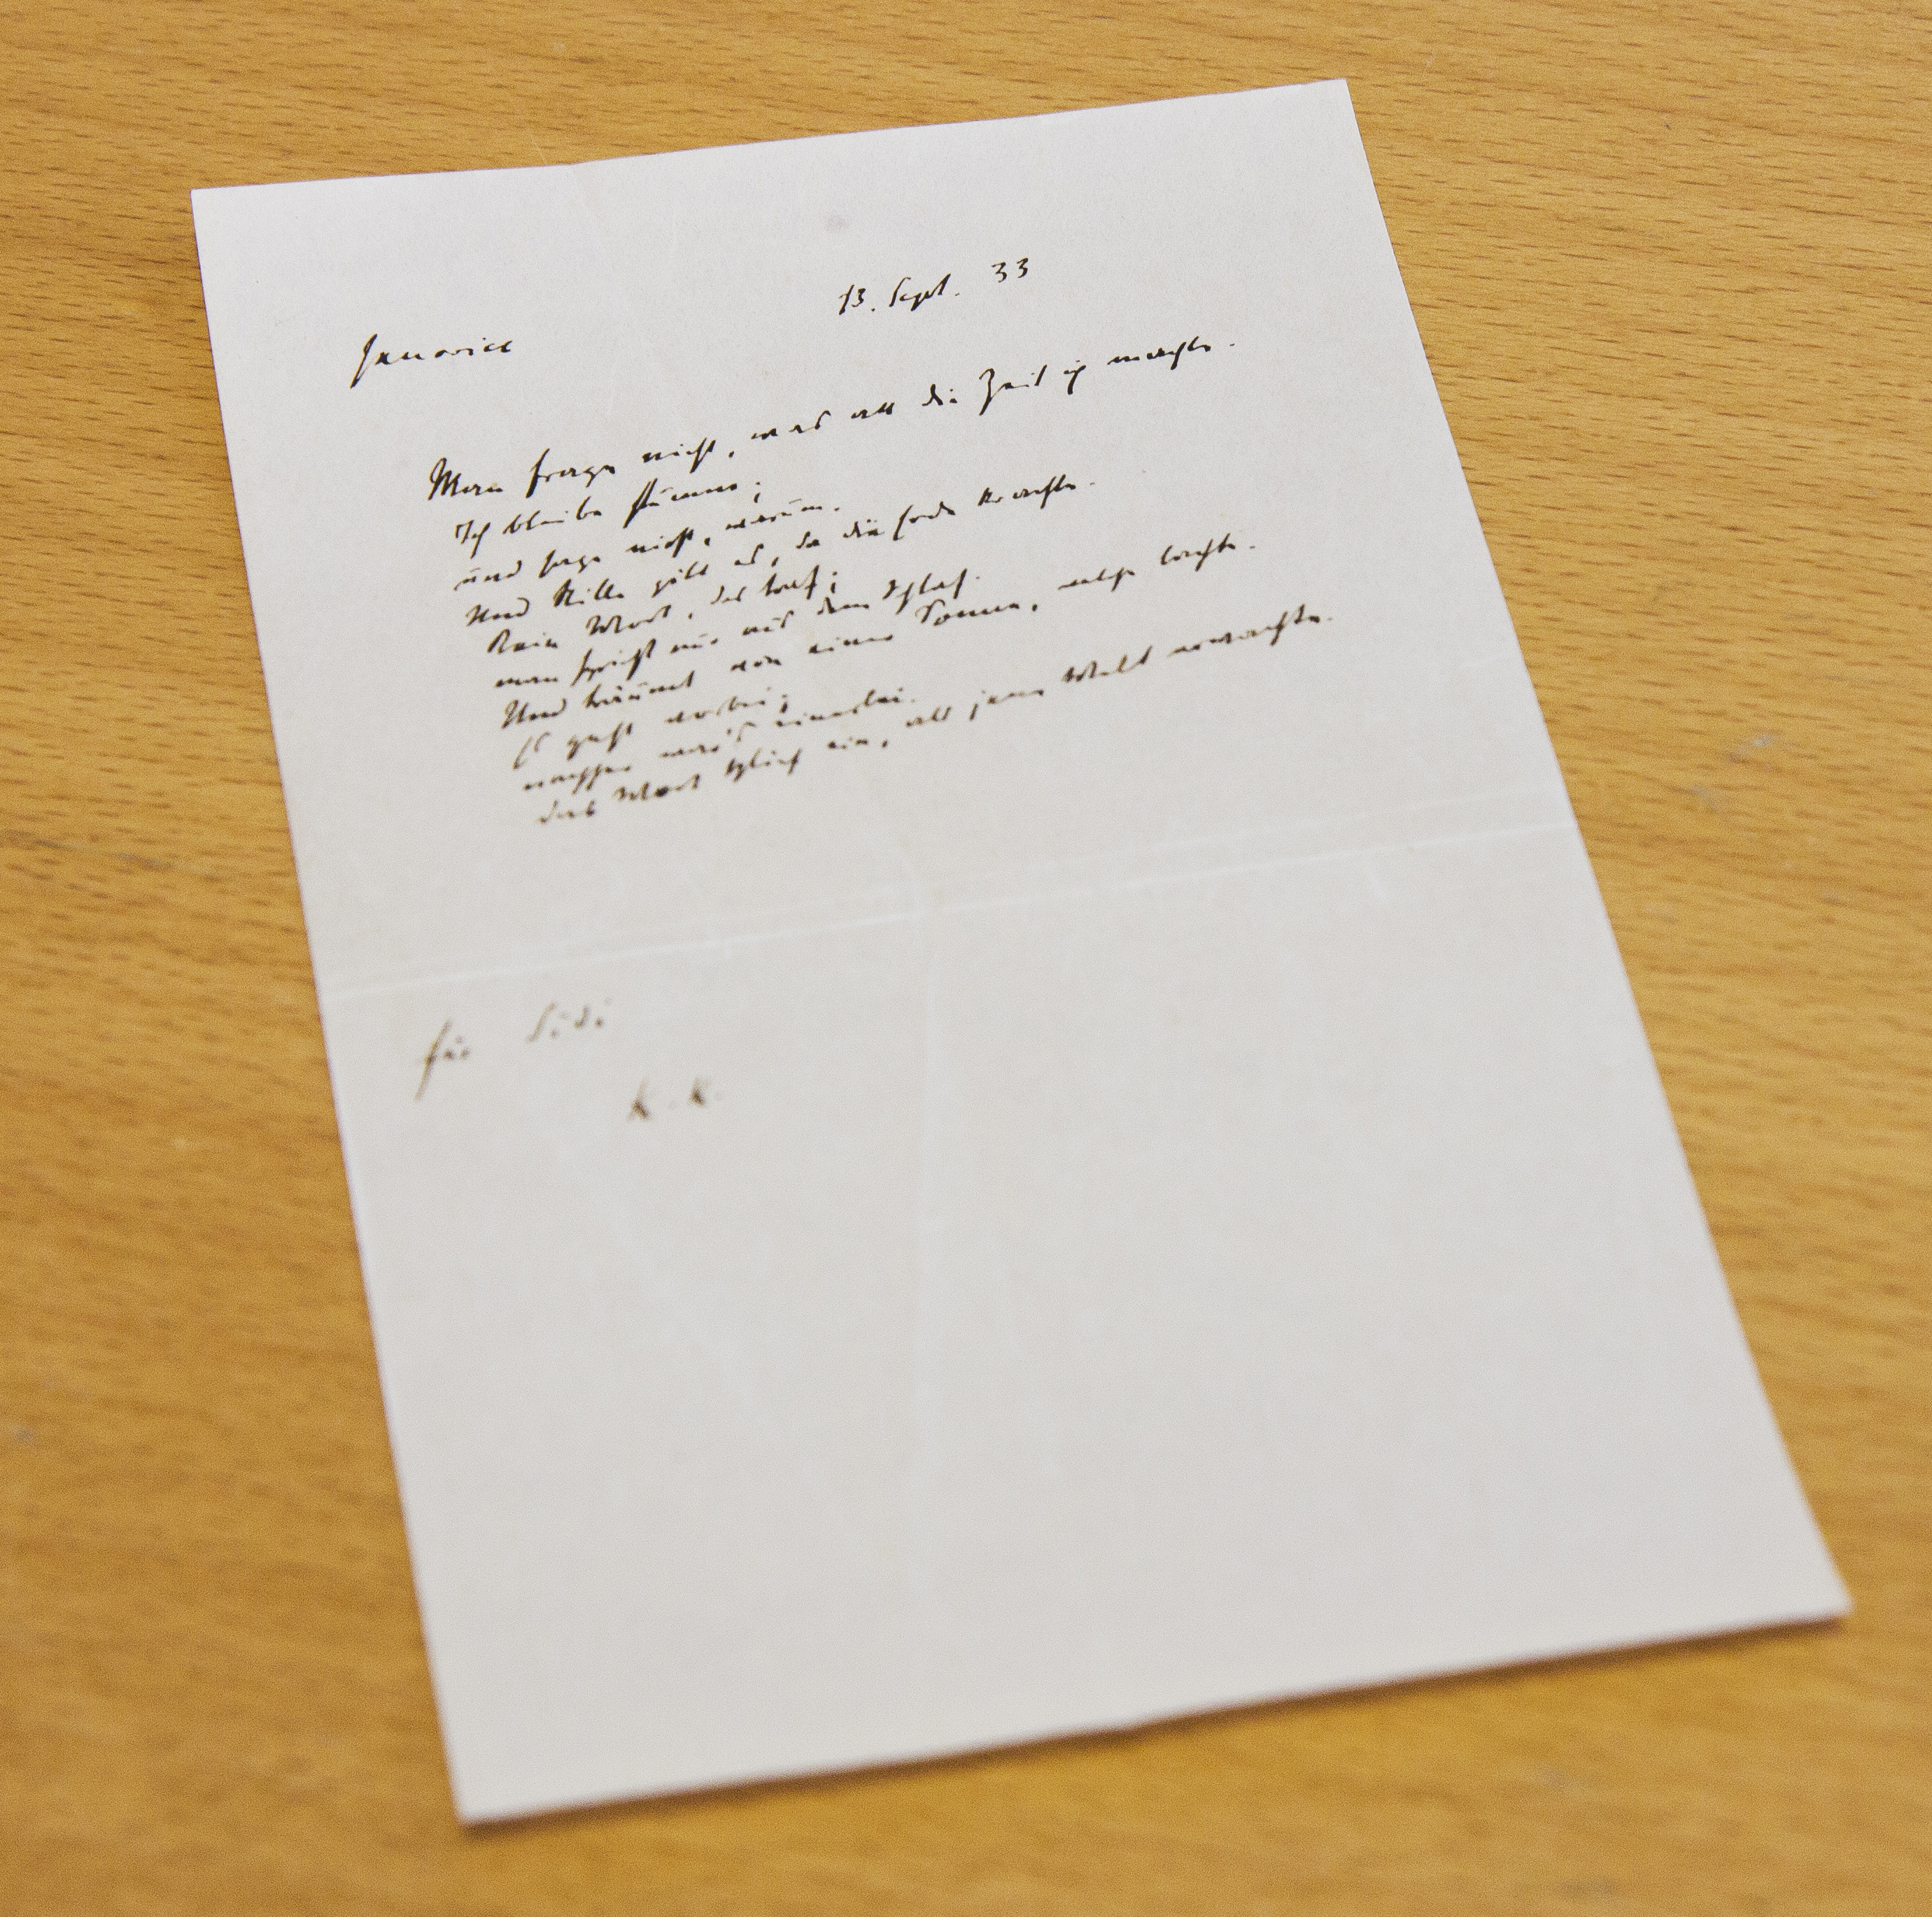 13. Sept. 33
Janovice
Man frage nicht, was all die Zeit ich machte.
Ich bleibe stumm;
und sage nicht, warum.
Und Stille gibt es, da die Erde krachte.
Kein Wort, das traf;
man spricht nur aus dem Schlaf.
Und träumt von einer Sonne, welche lachte.
Es geht vorbei;
nachher war's einerlei.
Das Wort schlief ein, als jene Welt erwachte.
für Sidi
K. K.